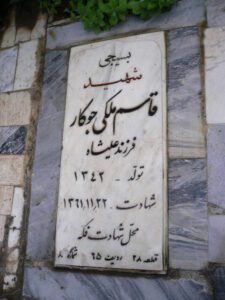 بسیجی
شهید
قاسم ملکی جوکار
فرزند علیشاه
تولد - ۱۳۴۲
شهادت - ۱۳۶۱,۱۱,۲۲
محل شهادت فکه
قطعه ۲۸ ردیف ۶۵ شماره